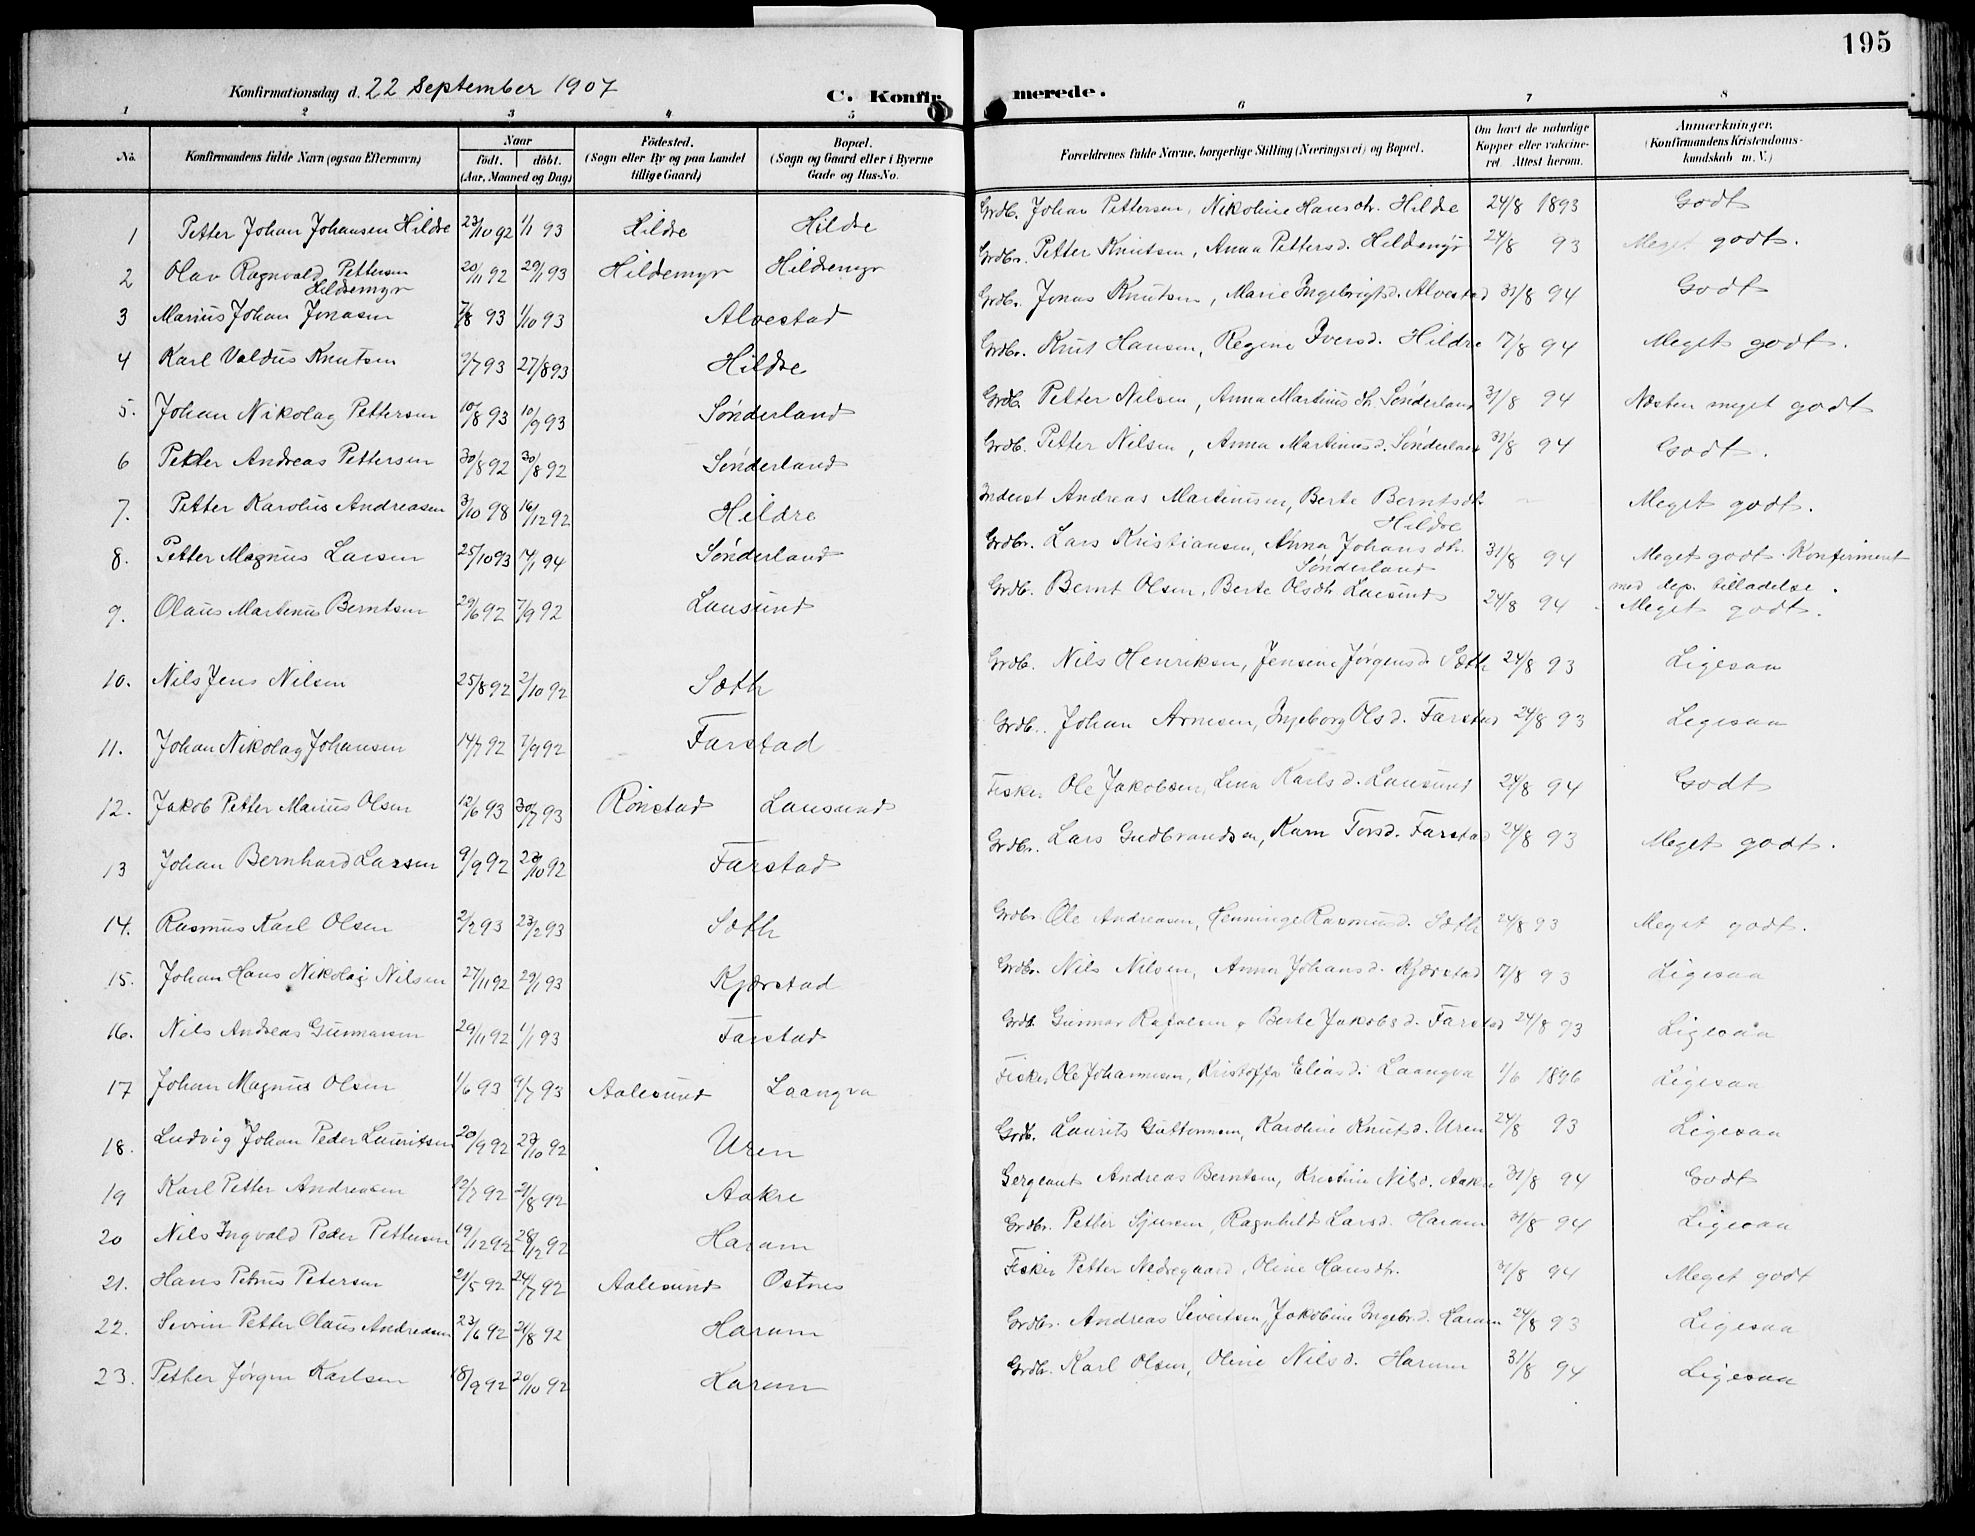 195
Konfirmationsdag d. 22 September 1907 C. Konfirmerede.
1 2 3 4 5 6 7 8
No. Konfirmandens fulde Navn (ogsaa Efternavn) Naar født. døbt. (Aar, Maaned og Dag) Fødested. (Sogn eller By og paa Landet tillige Gaard) Bopæl. (Sogn og Gaard eller i Byerne Gade og Hus-No. Forældrenes fulde Navne, borgerlige Stilling (Næringsvei) og Bopæl. Om havt de naturlige Kopper eller vakcineret Attest herom. Anmærkninger. (Konfirmandens Kristendomskundskab m. V.)
1 Petter Johan Johansen Hildre 23/10 92 1/1 93 Hildre Hildre Grdb. Johan Pettersen, Nikoline Hansdtr. Hildre 24/8 1893 Godt
2 Olav Ragnvald Pettersen Hildremyr 20/11 92 29/1 93 Hildremyr Hildremyr Grdbr. Petter Knutsen, Anna Pettersd. Hildremyr 24/8 93 Meget godt.
3 Marius Johan Jonasen 7/8 93 1/10 93 Alvestad Grdbr. Jonas Knutsen, Marie Ingebrigtsd. Alvestad 31/8 94 Godt
4 Karl Valdus Knutsen 9/7 93 27/8 93 Hildre Grdbr. Knut Hansen, Regine Iversd. Hildre 17/8 94 Meget godt.
5. Johan Nikolag Pettersen 10/8 93 10/9 93 Sønderland Grdb. Petter Nilsen, Anna Martinusdtr. Sønderland 31/8 94 Næsten meget godt
6 Petter Andreas Pettersen 30/8 92 30/8 92 Sønderland Grdb. Petter Nilsen, Anna Martinusd. Sønderland 31/8 94 Godt.
7. Petter Karolus Andreasen 3/10 98 16/12 92 Hildre Inderst Andreas Martinusen, Berte Berntsdtr. Hildre – Meget godt.
8. Petter Magnus Larsen 25/10 93 14/1 94 Sønderland Grdbr. Lars Kristiansen, Anna Johansdtr. Sønderland 31/8 94 Meget godt. Konfirmert med dep. tilladelse.
9. Olaus Martinus Berntsen 29/6 92 7/9 92 Lausund Grdb. Bernt Olsen, Berte Olsdtr. Lausund 24/8 94 Meget godt.
10. Nils Jens Nilsen 25/8 92 2/10 92 Sæth Grdb. Nils Henriksen, Jensine Jørgensd. Sæth 24/8 93 Ligesaa
11. Johan Nikolag Johansen 14/7 92 7/9 92 Farstad Grdb. Johan Arnesen, Ingeborg Olsd. Farstad 24/8 93 Ligesaa
12. Jakob Petter Marius Olsen 12/6 93 30/7 93 Rønstad Lausund Fisker Ole Jakobsen, Lina Karlsd. Lausund 24/8 94 Godt
13 Johan Bernhard Larsen 9/9 92 23/10 92 Farstad Grdbr. Lars Gudbrandsen, Karn Torsd. Farstad 24/8 93 Meget godt.
14. Rasmus Karl Olsen 2/2 93 23/2 93 Sæth Grdbr. Ole Andreasen, Henninge Rasmusd. Sæth 24/8 93 Meget godt.
15. Johan Hans Nikolai Nilsen 27/11 92 29/1 93 Kjærstad Grdbr. Nils Nilsen, Anna Johansd. Kjærstad 17/8 93 Ligesaa
16. Nils Andreas Gunnarsen 29/11 92 1/1 93 Farstad Grdb. Gunnar Rafalsen, Berte Jakobsd. Farstad 24/8 93 Ligesaa
17 Johan Magnus Olsen 1/6 93 9/7 93 Aalesund Laangva Fisker Ole Johannesen, Kristoffa Eliasd. Laangva 1/6 1896 Ligesaa
18. Ludvig Johan Peder Lauritsen 20/9 92 23/10 92 Uren Grdb. Laurits Guttormsen, Karoline Knutsd. Uren 24/8 93 Ligesaa
19 Karl Petter Andreasen 12/7 92 21/8 92 Aakre Sergeant Andreas Berntsen, Kristine Nilsd. Aakre 31/8 94 Godt
20 Nils Ingvald Peder Pettersen 19/12 92 28/12 92 Haram Grdbr. Petter Sjursen, Ragnhild Larsd. Haram 31/8 94 Ligesaa
21. Hans Petrus Petersen 21/5 92 24/7 92 Aalesund Ostnes Fisker Petter Nedregaard, Oline Hansdtr. 31/8 94 Meget godt
22. Sevrin Petter Olaus Andreasen 23/6 92 21/8 92 Haram Grdbr. Andreas Sivertsen, Jakobine Ingebr.d. Haram 24/8 93 Ligesaa
23. Petter Jørgen Karlsen 18/9 92 20/10 92 Haram Grdbr. Karl Olsen, Oline Nilsd. Haram 31/8 94 Ligesaa